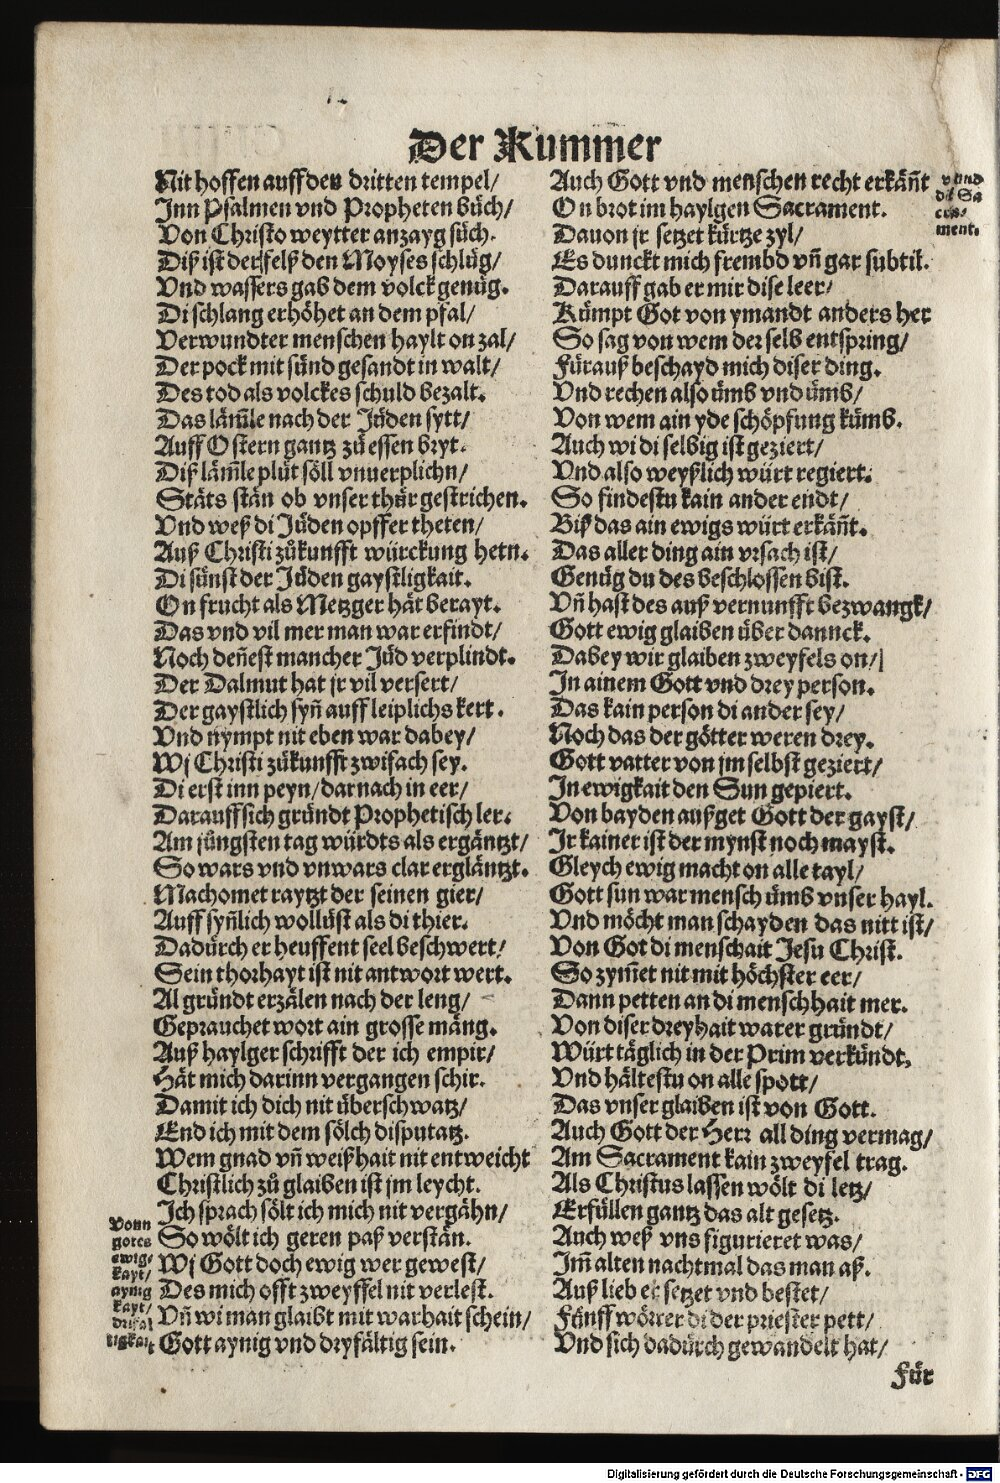 Der Kummer
Nit hoffen auff den dritten tempel/
Inn Psalmen vnd Propheten büch/
Von Christo weytter anzayg süch.
Diß ist der felß den Moyses schlüg/
Vnd wassers gab dem volck genüg.
Di schlang erhöhet an dem pfal/
Verwundter menschen haylt on zal/
Der pock mit sünd gesandt in walt/
Des tod als volckes schuld bezalt.
Das lām̄le nach der Jüden sytt/
Auff Ostern gantz zů essen bryt.
Diß läm̄le plůt söll vnuerplichn/
Stäts stän ob vnser thür gestrichen.
Vnd weß di Jüden opffer theten/
Auß Christi zůkunfft würckung hetn.
Di sünst der Jüden gaystligkait.
On frucht als Metzger hät berayt.
Das vnd vil mer man war erfindt/
Noch deñest mancher Jüd verplindt.
Der Dalmut hat jr vil versert/
Der gaystlich syñ auff leiplichs kert.
Vnd nympt nit eben war dabey/
Wj Christi zůkunfft zwifach sey.
Di erst inn peyn/ darnach in eer/
Darauff sich gründt Prophetisch ler.
Am jüngsten tag würdts als ergäntzt/
So wars vnd vnwars clar erglāntzt.
Machomet raytzt der seinen gier/
Auff syñlich wollüst als di thier.
Dadürch er heuffent seel beschwert/
Sein thorhayt ist nit antwort wert.
Al gründt erzälen nach der leng/
Geprauchet wort ain grosse mäng.
Auß haylger schrifft der ich empir/
Hät mich darinn vergangen schir.
Damit ich dich nit überschwatz/
End ich mit dem sölch disputatz.
Wem gnad vñ weißhait nit entweicht
Christlich zů glaiben ist jm leycht.
Ich sprach sölt ich mich nit vergähn/
So wölt ich geren paß verstän.
Wj Gott doch ewig wer gewest/
Des mich offt zweyffel nit verlest.
Vñ wi man glaibt mit warhait schein/
Gott aynig vnd dryfältig sein.
Vonn
gotes
ewig-
kayt/
aynig
kayt/
drifal
tigkait
Auch Gott vnd menschen recht erkäñt
On brot im haylgen Sacrament.
Dauon jr setzet kürtze zyl/
Es dunckt mich frembd vñ gar subtil.
Darauff gab er mir dise leer/
Kümpt Got von ymandt anders her
So sag von wem der selb entspring/
Fürauß beschayd mich diser ding.
Vnd rechen also ümb vnd ümb/
Von wem ain yde schöpfung kümb.
Auch wi di selbig ist geziert/
Vnd also weyßlich würt regiert.
So findestu kain ander endt/
Biß das ain ewigs würt erkäñt.
Das aller ding ain vrsach ist/
Genüg du des beschlossen bist.
Vñ hast des auß vernunfft bezwangk/
Gott ewig glaiben über dannck.
Dabey wir glaiben zweyfels on/
In ainem Gott vnd drey person.
Das kain person di ander sey/
Noch das der götter weren drey.
Gott vatter von jm selbst geziert/
In ewigkait den Sun gepiert.
Von bayden außget Gott der gayst/
Ir kainer ist der mynst noch mayst.
Gleych ewig macht on alle tayl/
Gott sun war mensch ümb vnser hayl.
Vnd möcht man schayden das nitt ist/
Von Got di menschait Jesu Christ.
So zym̄et nit mit höchster eer/
Dann petten an di menschhait mer.
Von diser dreyhait warer gründt/
Würt täglich in der Prim verkündt.
Vnd hältestu on alle spott/
Das vnser glaiben ist von Gott.
Auch Gott der Herr all ding vermag/
Am Sacrament kain zweyfel trag.
Als Christus lassen wölt di letz/
Erfüllen gantz das alt gesetz.
Auch weß vns figurieret was/
Im̄ alten nachtmal das man aß.
Auß lieb er setzet vnd bestet/
Fünff wörter di der priester pett/
Vnd sich dadürch gewandelt hat/
vnnd
dz Sa
cra-
ment.
Für
Digitalisierung gefördert durch die Deutsche Forschungsgemeinschaft - DFG